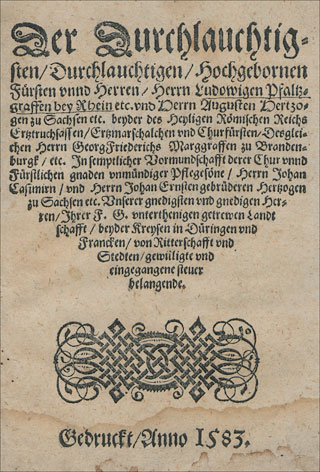 Der Durchlauchtig-
sten/Durchlauchtigen/Hochgebornen
Fürsten vnnd Herren/Herrn Ludowigen Pfaltz-
graffen bey Rhein etc. vnd Herrn Augusten Hertzo-
gen zu Sachsen etc. beyder des Heyligen Römischen Reichs
Ertztruchsassen/Ertzmarschalchen vnd Churfürsten/Desglei-
chen Herrn GeorgFriederichs Marggraffen zu Branden-
burgk/etc. In semptlicher Vormundschafft derer Chur vnnd
Fürstlichen gnaden vnmündiger Pflegesöne/Herrn Johan
Casimirn/vnd Herrn Johan Ernsten gebrüderen Hertzogen
zu Sachsen etc. Vnserer gnedigsten vnd gnedigen Her-
ren/Ihrer F. G. vnterthenigen getrewen Landt
schafft/beyder Kreysen in Düringen vnd
Francken/von Ritterschafft vnd
Stedten/gewilligte vnd
eingegangene steuer
belangende.
Gedruckt/Anno 1583.